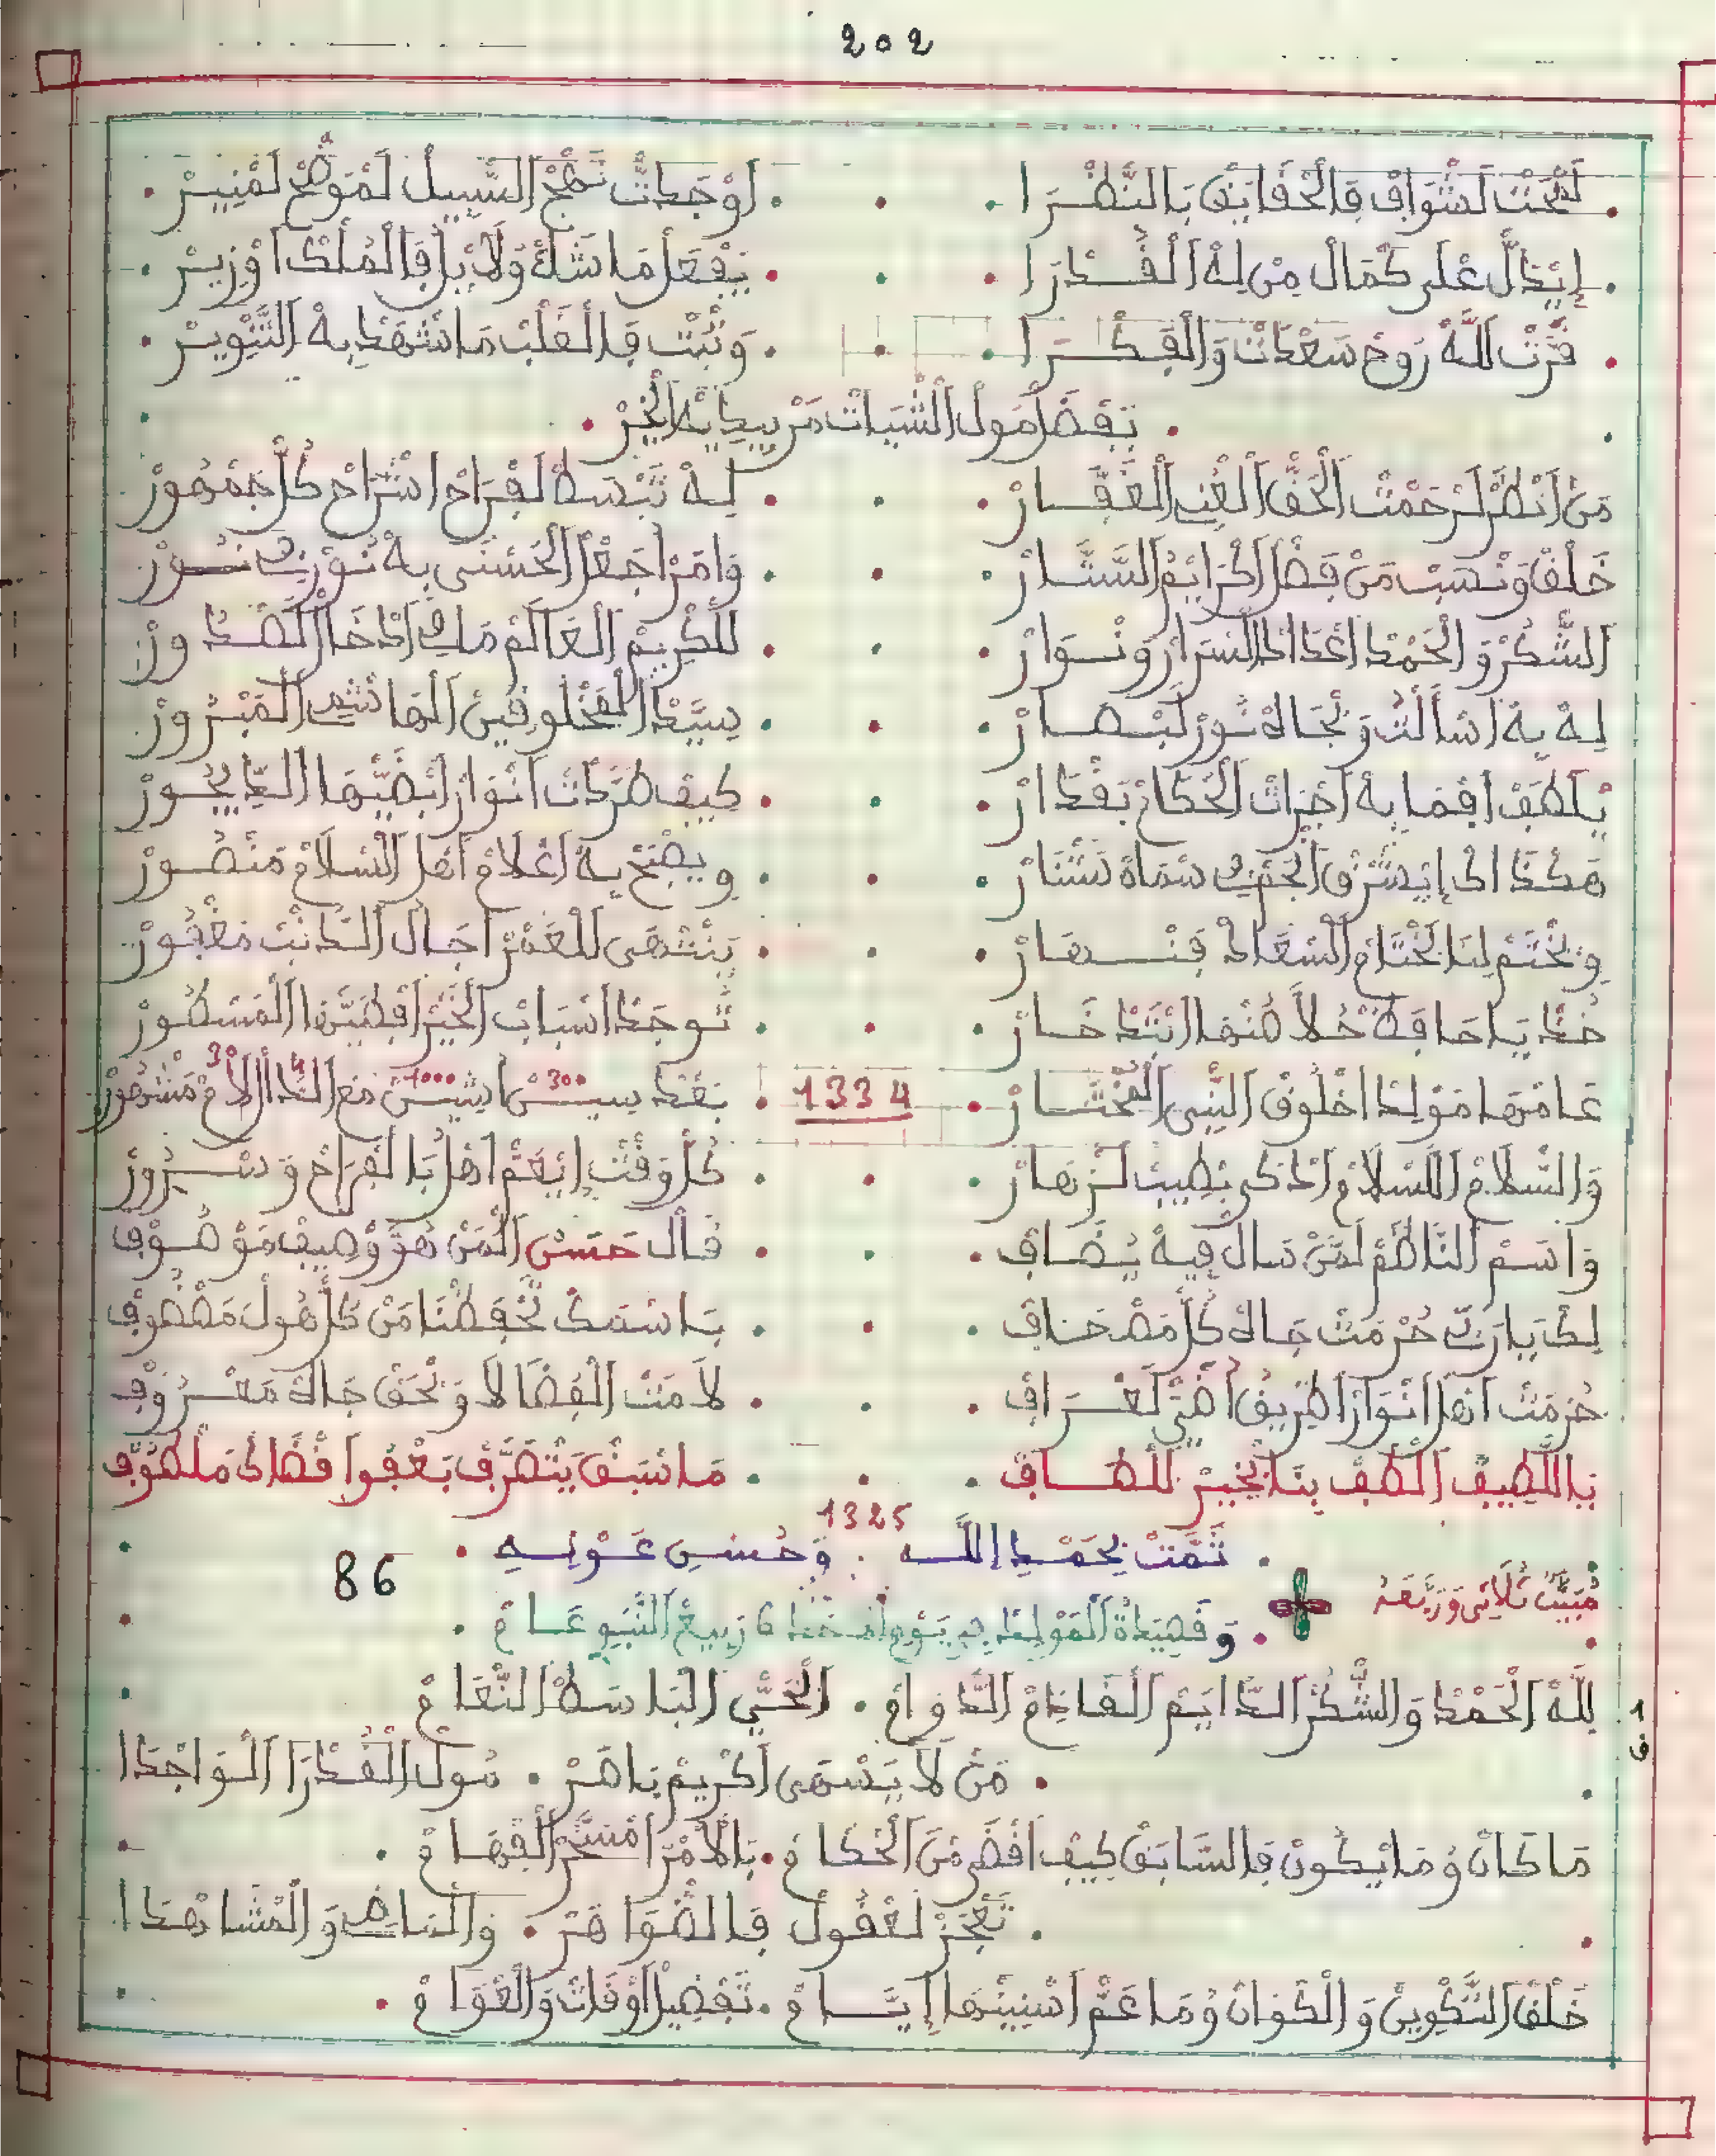 202
لَحْتْ لَشْوَاقْ فَالْحْقَايَقْ بَالنَّظْرَا . اوْجَدْتْ نَهْجْ السّْبِيلْ لَمْوَضَّحْ لَمْنِيرْ
إيْدَلّْ عْلَى كْمَالْ مِنْ لِهْ الْقُدْرَا . يَفْعَلْ مَا شَاءْ وَلَا يْلُ فَالْمُلْكْ اوْزِيرْ
فَرّْتْ للَّهْ رُوحْ سَعْدَاتْ وَالْفِكْرَا . وَثْبَتْ فَالْقَلْبْ مَا شْهَدْ بِهْ التَّنْوِيرْ
بَفْضَلْ مُولْ الشِّيَاتْ مَنْ بِيدِيهْ الْخِيرْ
مَنْ انْظَرْ لَرْحَمْتْ الْحَقّْ الْغْنِي الْغَفَّارْ . لِهْ تَبْسَطْ لَفْرَاحْ اشْرَاحْ كُلّْ جَمْهُورْ
خَلْقْ وَنْصَبْ مَنْ فَضْلْ اكْرَايَمْ السَّتَّارْ . وَامَنْ اجْعَلْ الْحَسْنَى بِهْ نُورْ فِي نُورْ
الشُّكْرْ وَ الْحَمْدْ اعْدَادْ السْرَارْ وَنْوَارْ . للْكْرِيمْ الْعَالَمْ مَا فِي ادْخَالْ الصّْدُورْ
لِهْ بِهْ اسْأَلْتْ وَبْجَاهْ نُورْ لَبْصَارْ . سِيَّدْ الْمَخْلُوقِينْ الْهَاشْمِي الْمَبْرُورْ
يْلَطَفْ افْمَا بِهْ اجْرَاتْ الْحْكَامْ بَقْدَارْ . كِيفْ طَرْدَاتْ انْوَارْ ابْضِيّهَا الدِّيجُورْ
هَكْدَا اكْ إيْشَرَّقْ الْخَيْرْ فِي سْمَاهْ نَسْتْنَارْ . وِيصْبَحْ بِهْ اعْلَامْ اهْلْ السْلَامْ مَنْصُورْ
وِيخْتَمْ لِنَا بَخْتَامْ السّْعَادْ فِنْهَارْ . يَنْتْهَى للْعْمَرْ اجَالْ الدَّنْبْ مَغْفُورْ
خُدْ يَا حَافَظْ حُلَّا مْنْهَا ابْتَدْخَارْ . تُوجَدْ اسْبَابْ الْخَيْرْ افْطِيّهَا الْمَسْطُورْ
عَامْهَا مَوْلِدْ اخْلُوقْ النّْبِي الْمُخْتَارْ . 1334 . بَعْدْ سِينْ اشِينْ مَعْ الدَّالْ الْلَامْ مَشْهُورْ
300 1000 4 30
وَالسّْلَامْ اللّْسْلَامْ ادْكَى بْطِيبْ لَزْهَارْ . كُلّْ وَقْتْ إيْعَمّْ اهْلْ بَالْفْرَاحْ وَسْرُورْ
وَاسَمْ النَّاظَمْ لَمَنْ سَالْ فِيهْ يُضَافْ . قَالْ حَسَنْ الْمَنْ هُوَّ وْصِيفْ مَوْصُوفْ
لِكْ يَا رَبِّ حُرْمَتْ جَاهْ كُلّْ مَصْحَافْ . بَاسْمَكْ تَحْفَظْنَا مَنْ كُلّْ هُولْ مَصْضُوفْ
حُرْمَتْ اهْلْ انْوَارْ اطْرِيقْ اهْتَى لَعْرَافْ . لَا مَتْ الْقْضَا لَا وَبْحَقّْ جَاهْ مَعْرُوفْ
يَا اللَّطِيفْ الْطَفْ بِنَا بْخَيْرْ للْطَافْ . مَا سْبَقْ يَتْصَرَّفْ بَعْفُو اقْضَاكْ مَلْطُوفْ
1325
تَمَّتْ بِحَمْدِ اللَّه . وَحُسْنِ عَوْنِهِ
86
مْبَيَّتْ ثْلَاثِي وَرَبَعَهُ
وَقَصِيدَةُ الْمَوْلِدْ فِي يَوْمِ رَبِيعْ النَّبَوِي عَامْ
للَّهْ الْحَمْدْ وَالشُّكْرْ الدَّايَمْ الْقَادَمْ الدَّوَامْ . الْحَيّْ الْبَاسَطْ النّْعَامْ
1 ق
مَنْ لَا يَسْهَى اكْرِيمْ بَاهَرْ . مُولْ الْقُدْرَا الْوَاجْدَا
مَا كَانْ وُمَا يْكُونْ فَالسَّابَقْ كِيفْ اقْضَى مْنْ الْحْكَامْ . بَالَامْرْ امْسَخَّرْ الْفْهَامْ
تَعْجَزْ لَعْقُولْ فَالظْوَاهَرْ . وَالْمَاضِي وَالْمْشَاهْدَا
خَلْقْ التَّكْوِينْ وَالْكْوَانْ وُمَا عَمّْ اسْنِينْهَا إيَّامْ . تَفْضِيلْ اوْقَاتْ وَالْعْوَامْ